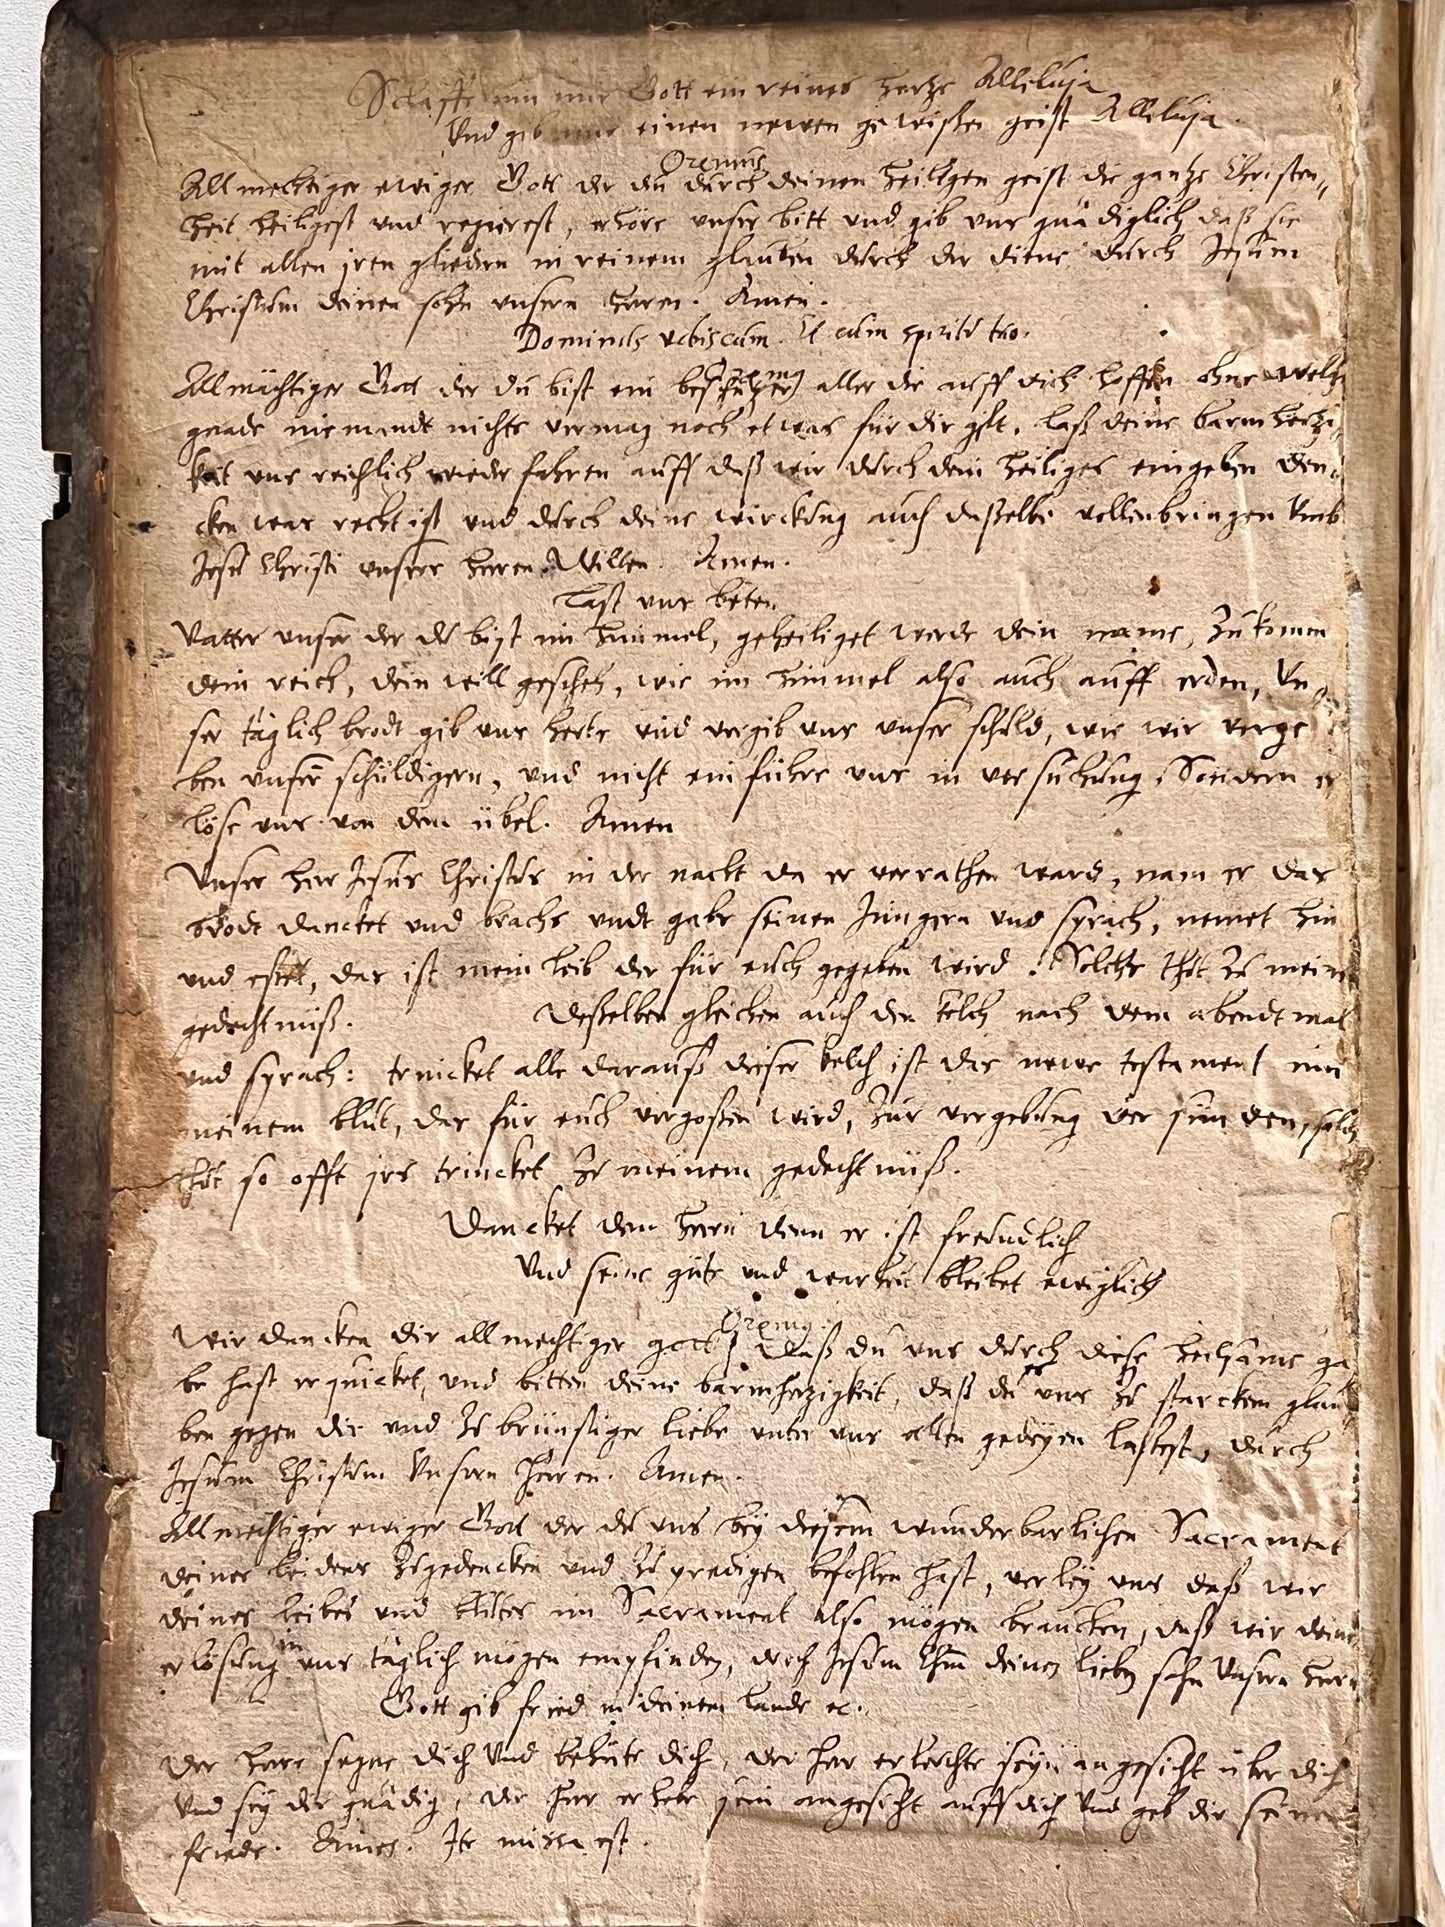 Schaffe inn mir Gott ein reines hertze Alleluja
Und gib mir einen newen gewißen geist Alleluja.
Oremus
Allmechtiger ewiger Gott der du durch deinen heiligen geist die gantze Christen,,
heit heiligest und regierest, erhöre unser bitt und gib uns gnädiglich, daß sie
mit allen jren gliedern in reinem glauben durch dir diene durch Jesum
Christum deinen sohn unsern herrn. Amen.
Dominus vobiscum. Et cum spiritu tuo.
Oremus
Allmächtiger Gott der du bist ein beschützer aller die auff dich hoffen ohne welch
gnade niemandt nichts vermag noch etwas für dir gilt, laß deine barmhertzi,
keit uns reichlich wiederfahren auff daß wir durch dein heiliges eingeben den,
cken was recht ist und durch deine wirckung auch dasselbe vollenbringen Umb
Jesu Christi unsers herren Willen. Amen.
Last uns beten
Vatter unser der du bist im himmel, geheiliget werde dein name, zukomm
dein reich, dein will gescheh, wie im himmel also auch auff erden, Un,
ser täglich brodt gib uns heute und vergib uns unser schuld, wie wir verge
ben unsern schüldigern, und nicht einführe uns in versuchung, Sondern er
löse uns von dem übel. Amen
Unser herr Jesus Christus in der nacht da er verrathen ward, nam er das
brodt dancket und brachs undt gabs seinen Jüngern und sprach, nemet hin
und eßet, das ist mein leib der für euch gegeben wird. Solchs thut zu meim
gedechtnüß. Deßelben gleichen auch den kelch nach dem abendtmal
und sprach: trincket alle darauß dieser kelch ist das newe testament inn
meinem blut, das für euch vergoßen wird, zur vergebung der sunden, solchs
thut so offt jrs trincket zu meinem gedechtnüß.
Dancket dem herrn denn er ist freundlich
Und seine güte und warheit bleibet ewiglich
Oremus.
Wir dancken dir allmechtiger gott daß du uns durch diese heilsame ga
be hast erquicket, und bitten deine barmhertzigkeit, daß du uns zu starckem glau
ben gegen dir und zu brünstiger liebe unter uns allen gedeyen laßest, durch
Jesum Christum Unsern Herren. Amen.
Allmechtiger ewiger Gott der du uns bey diesem wunderbarlichen Sacrament
deines leidens zugedencken und zu predigen befohlen hast, verley uns daß wir
deines leibes und blutes im Sacrament also mögen brauchen, daß wir deine
erlösung in uns täglich mögen empfinden, durch Jesum Chm deinen lieben sohn Unsern herrn
Gott gib fried in deinem lande ec.
Der herr segne dich Und behüte dich, der herr erleuchte seyn angesicht über dich
Und sey dir gnädig, der herr erhebe sein angesicht auff dich Und geb dir seinen
friede. Amen. Ite missa est.